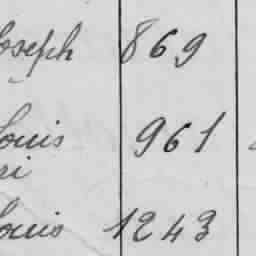 Joseph 869
Louis 961
ri
Louis 1243